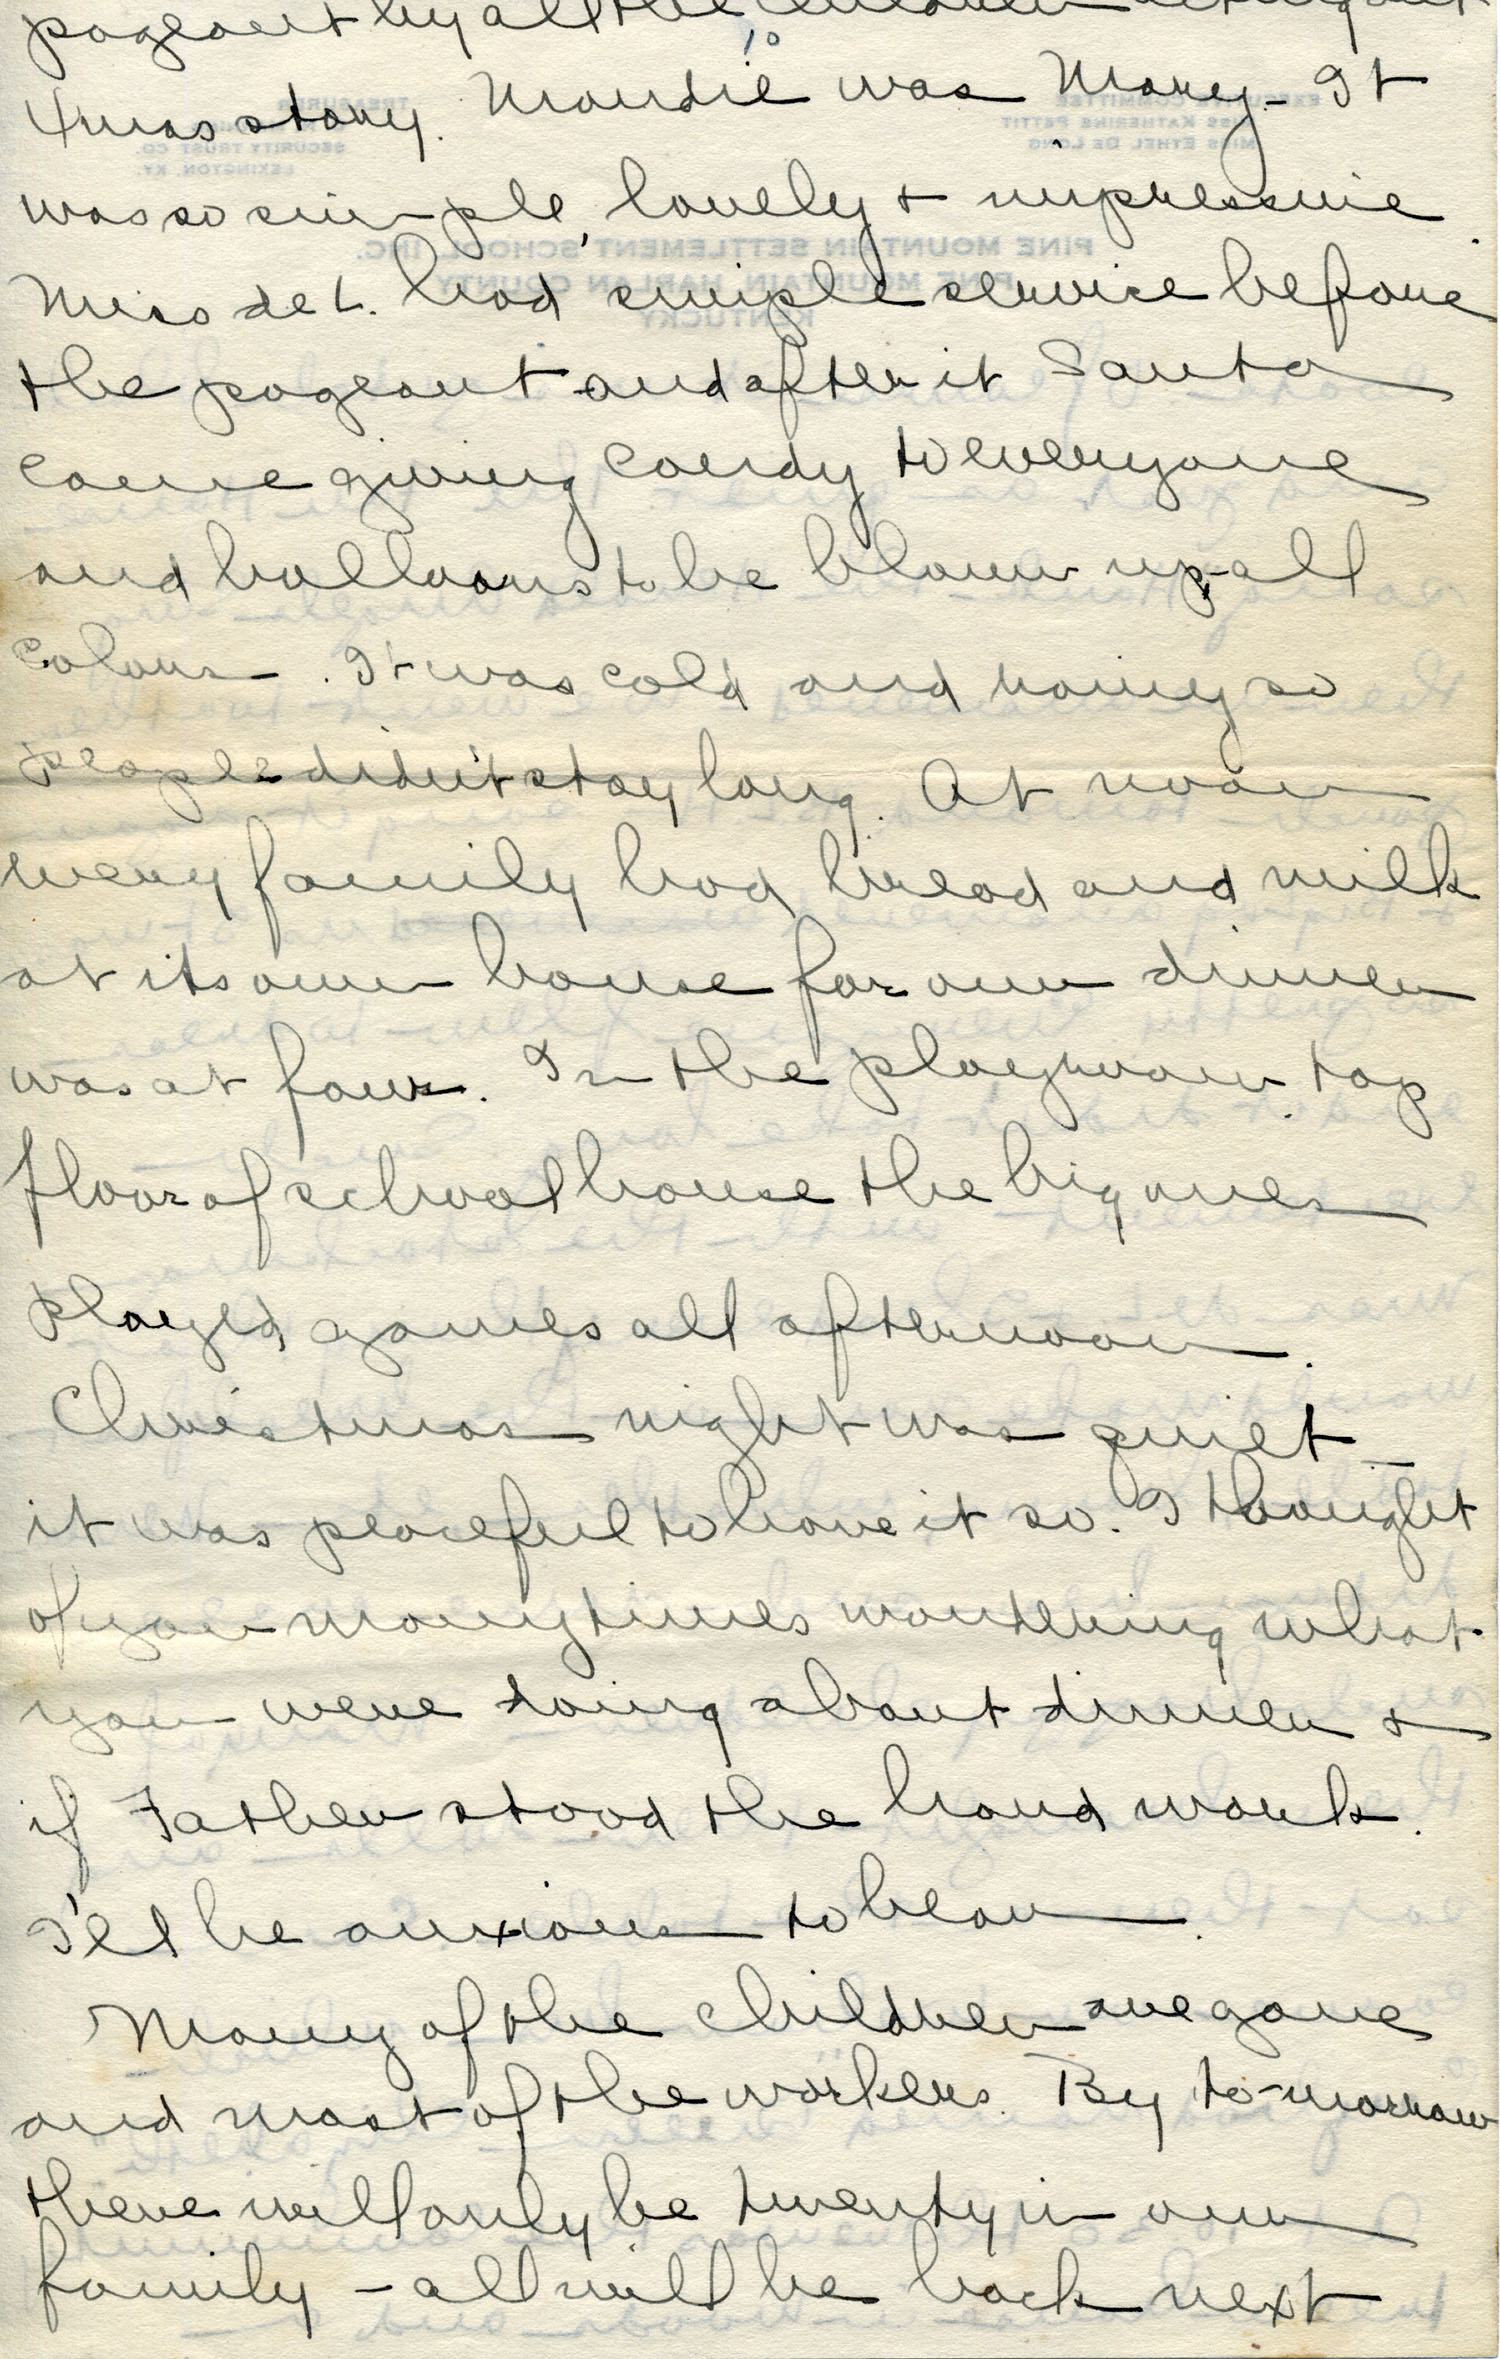 pageant by all the children acting out
10
Xmas story. Maudie was Mary - It
was so simple, lovely + impressive.
Miss de L. had simple service before
the pageant and after it Santa
came giving candy to everyone
and balloons to be blown up - all
colours. It was cold and rainy so
people didn't stay long. At noon
every family had bread and milk
at its own house for our dinner
was at four. In the playroom top
floor of school house the big ones
played games all afternoon.
Christmas night was quiet -
it was peaceful to have it so. I thought
of you many times wondering what
you were doing about dinner +
if Father stood the hard work.
I'll be anxious to hear.
Many of the children are gone
and most of the workers. By to-morrow
there will only be twenty in our
family - all will be back next
EXECUTIVE COMMITTEE
MISS KATHERINE PETTIT
MISS ETHEL DE LONG
TREASURER
SECURITY TRUST CO.
LEXINGTON, KY.
PINE MOUNTAIN SETTLEMENT SCHOOL, INC.
PINE MOUNTAIN, HARLAN COUNTY
KENTUCKY